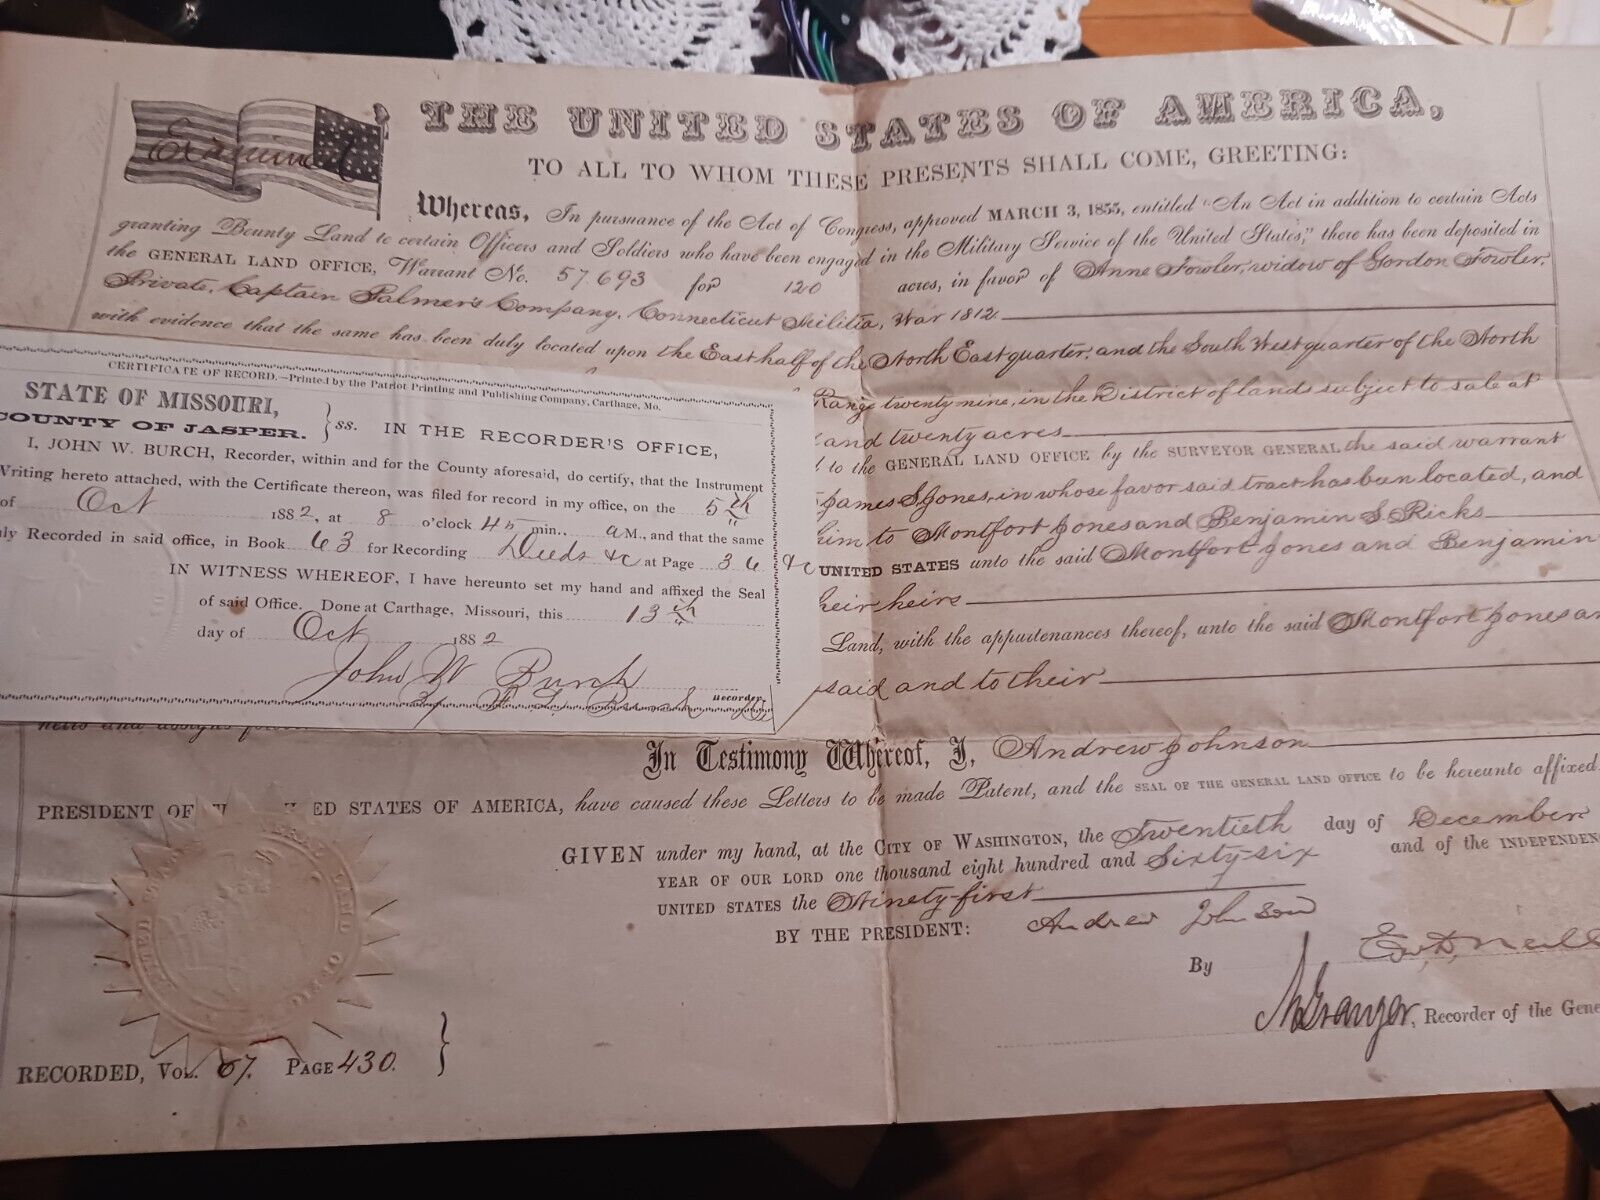 Examined
THE UNITED STATES OF AMERICA,
TO ALL TO WHOM THESE PRESENTS SHALL COME, GREETING:
Whereas, In pursuance of the Act of Congress, approved MARCH 3, 1855, entitled "An Act in addition to certain Acts
granting Bounty Land to certain Officers and Soldiers who have been engaged in the Military Service of the United States," there has been deposited in
the GENERAL LAND OFFICE, Warrant No. 57.693 for 120 acres, in favor of Anne Fowler, widow of Gordon Fowler,
Private, Captain Palmer's Company, Connecticut Militia, War 1812
with evidence that the same has been duly located upon the East half of the North East quarter, and the South West quarter of the North
Range twenty nine, in the District of lands subject to sale at
and twenty acres
to the GENERAL LAND OFFICE by the SURVEYOR GENERAL the said warrant
James S Jones, in whose favor said tract has been located, and
him to Montfort Jones and Benjamin S. Ricks
UNITED STATES unto the said Montfort Jones and Benjamin
heirs
Land, with the appurtenances thereof, unto the said Montfort Jones
said and to their
heirs and assigns
In Testimony Whereof, I, Andrew Johnson
PRESIDENT OF ED STATES OF AMERICA, have caused these Letters to be made Patent, and the SEAL OF THE GENERAL LAND OFFICE to be hereunto affixed.
GIVEN under my hand, at the CITY OF WASHINGTON, the Twentieth day of December
YEAR OF OUR LORD one thousand eight hundred and Sixty-six and of the INDEPENDEN
UNITED STATES the Ninety-first
BY THE PRESIDENT: Andrew Johnson
By
Granger, Recorder of the Gene
RECORDED, VOL. 67. PAGE 430.
CERTIFICATE OF RECORD.—Printed by the Patriot Printing and Publishing Company, Carthage, Mo.
STATE OF MISSOURI,
COUNTY OF JASPER. } ss. IN THE RECORDER'S OFFICE,
I, JOHN W. BURCH, Recorder, within and for the County aforesaid, do certify, that the Instrument
Writing hereto attached, with the Certificate thereon, was filed for record in my office, on the 5th
of Oct 1882, at 8 o'clock 45 min., A M., and that the same
ly Recorded in said office, in Book 63 for Recording Deeds &c at Page 36 &c
IN WITNESS WHEREOF, I have hereunto set my hand and affixed the Seal
of said Office. Done at Carthage, Missouri, this 13th
day of Oct 1882
John W Burch
Recorder.
By Burch